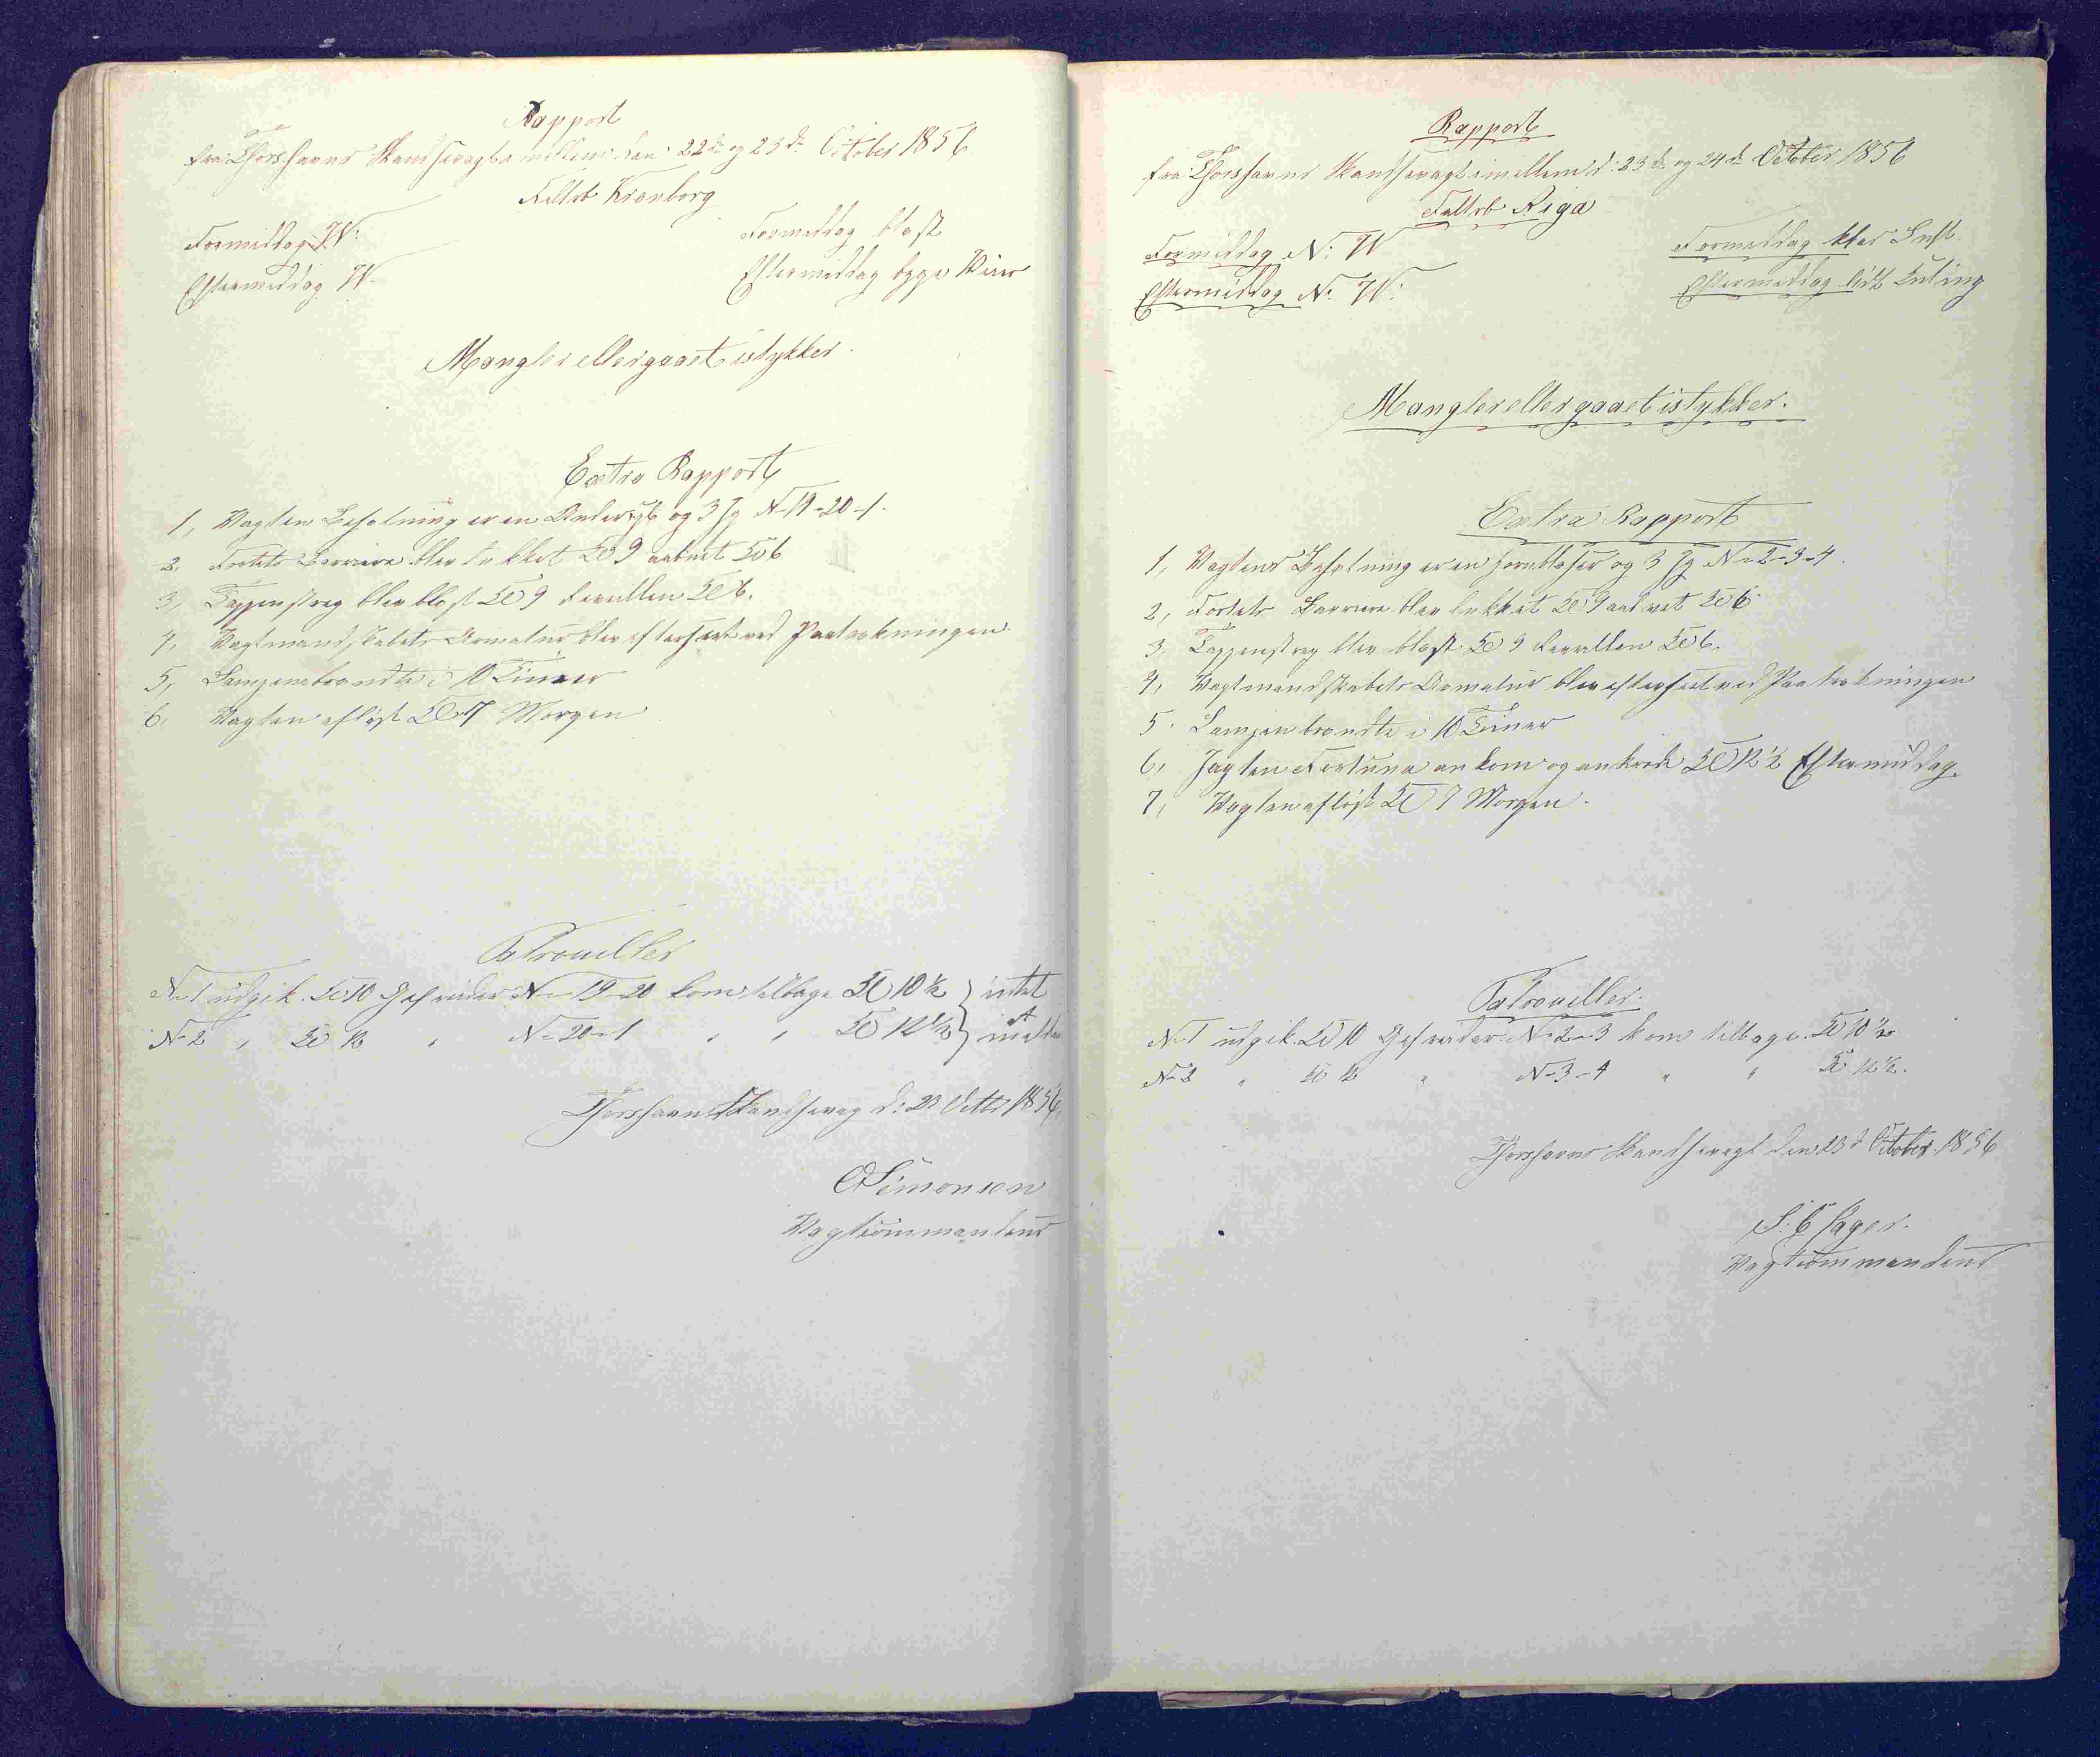 Rapport
fra Thorshavns Skandsevagt imellem den 22de og 23de October 1856
Feltrb Kronborg
Formiddag W:
Formiddag blæst
Eftermiddag W.
Eftermiddag byge Veier
Mangler eller gaaet istykker
Extra Rapport
1, Vagten Besætning er en Underjg og 3 Jg N-19-20-1.
2, Fortets Barriere blev lukket Kl 9 aabnet Kl 6
3, Tappenstreg blev blæst Kl 9 Revellien Kl 6.
4, Vagtmandskabets Armatur blev efterseet ved Paatrækningen.
5, Lampen brændte i 10 Timer
6, Vagten afløst Kl 7 Morgen
Patrouiller
N-1 udgik Kl 10 Gefreider N-19-20 kom tilbage Kl 10½ } intet
N-2 " Kl 12 " N-20-1 " " Kl 12½ } at melde
Thorshavns Skandsevag d: 23 Octbr 1856
Simonsen
Vagtcommandeur
Rapport
fra Thorshavns Skandsevagt imellem d: 23de og 24de October 1856
Feltrb Riga
Formiddag N: W
Formiddag klar Luft
Eftermiddag N: W:
Eftermiddag lidt Kuling
Mangler eller gaaet istykker.
Extra Rapport
1, Vagtens Besætning er en Hornblæser og 3 Jg N-2-3-4
2, Fortets Barriere blev lukket Kl 9 aabnet Kl 6
3, Tappenstreg blev blæst Kl 9 Revellien Kl 6.
4, Vagtmandskabets Armatur blev efterseet ved Paatrækningen
5, Lampen brændte i 10 Timer
6, Jagten Fortuna ankom og ankrede Kl 12½ Eftermiddag.
7, Vagten afløst Kl 7 Morgen.
Patrouiller.
N-1 udgik Kl 10 Gefreider N-2-3 kom tilbage Kl 10½
N-2 " Kl 12 " N-3-4 " " Kl 12½.
Thorshavns Skandsevagt den 23d October 1856
Vagtcommandeur